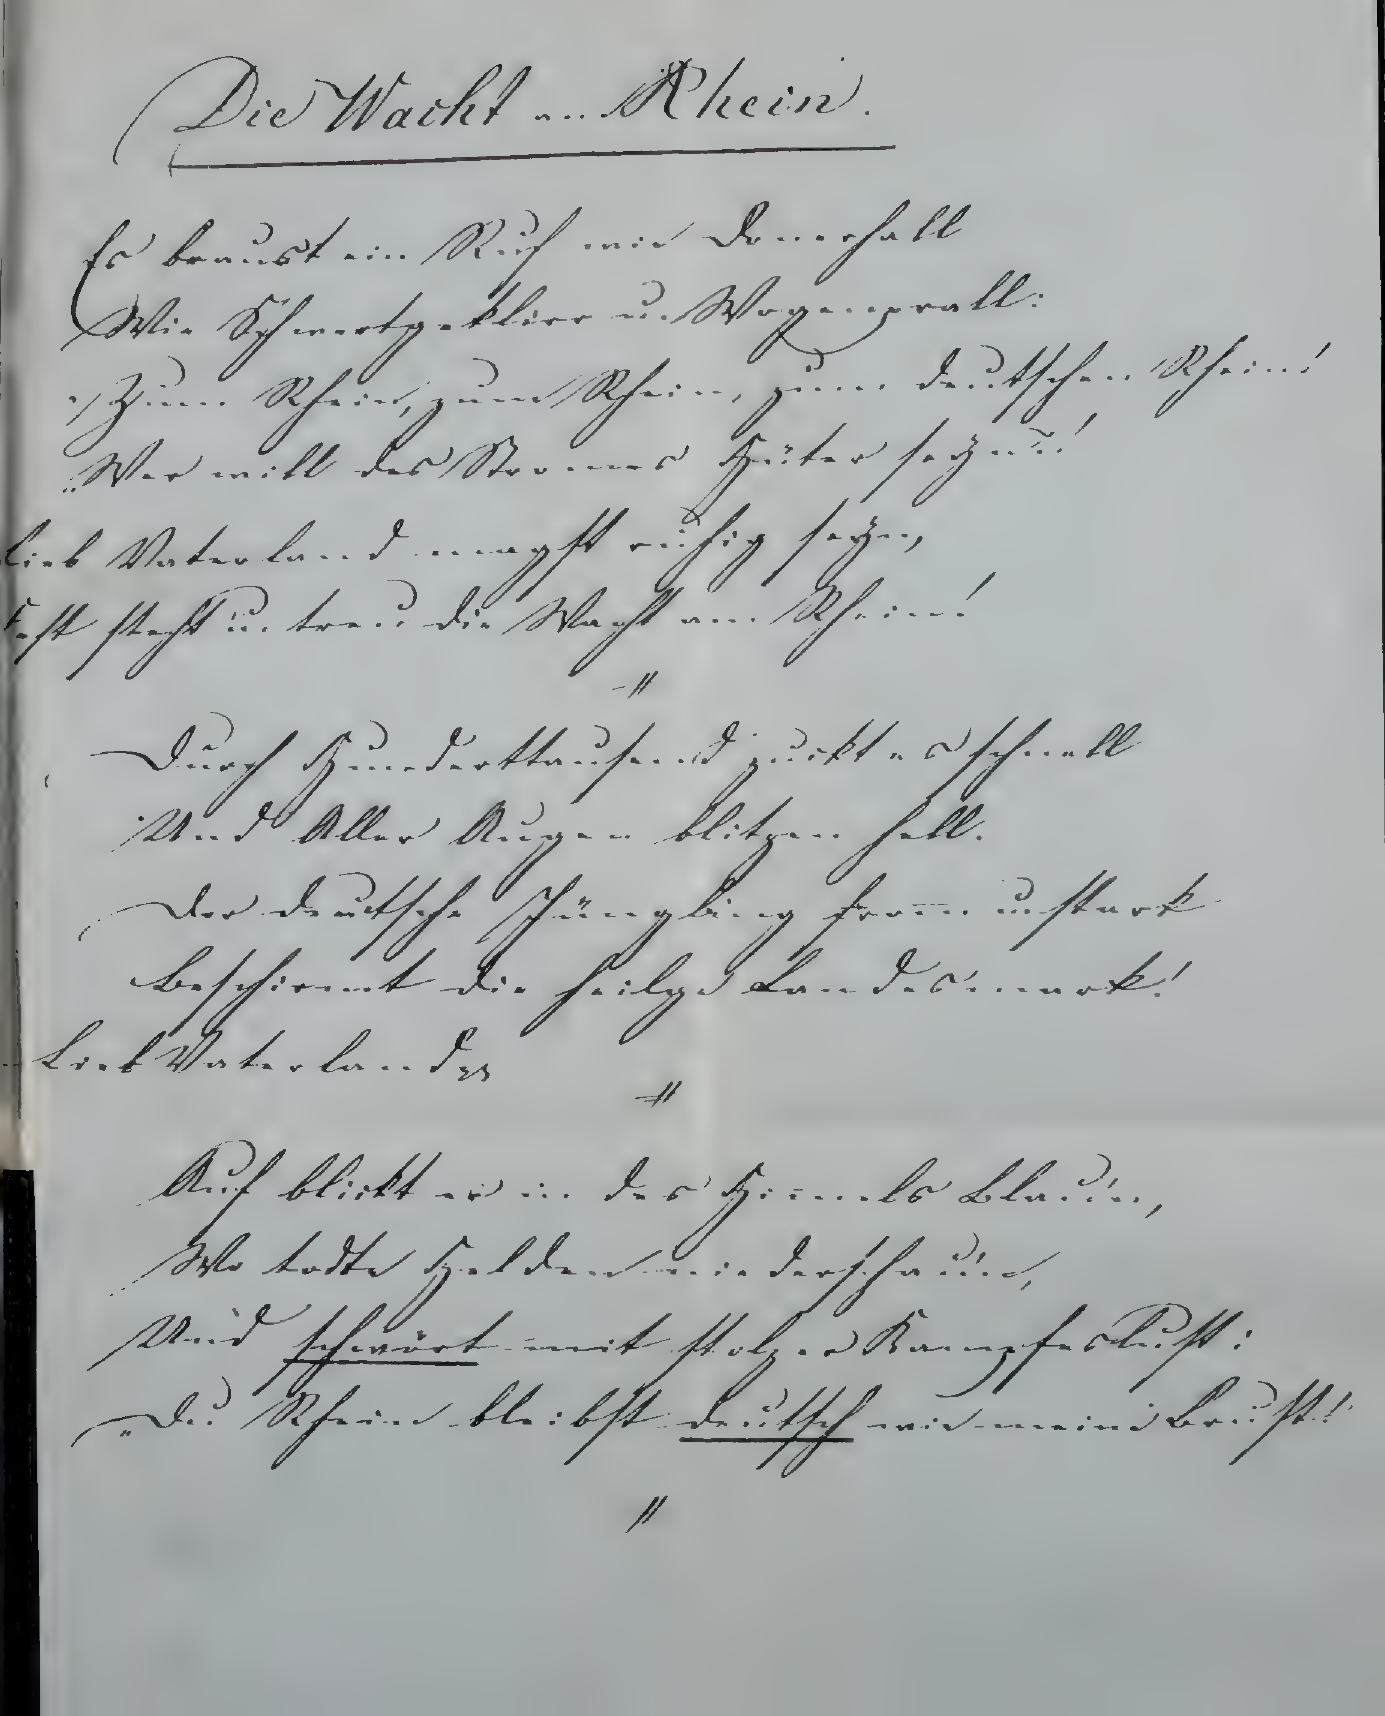 Die Wacht am Rhein.
Es braust ein Ruf wie Donnerhall
Wie Schwertgeklirr u. Wogenprall:
„Zum Rhein, zum Rhein, zum deutschen Rhein!
„Wer will des Stromes Hüter seyn“!
Lieb Vaterland magst ruhig seyn,
Fest steht u. treu die Wacht am Rhein!
Durch Hunderttausend zuckt es schnell
Und Aller Augen blitzen hell.
Der deutsche Jüngling from̅ u. stark
Beschirmt die heilge Landesmark!
Lieb Vaterland
Auf blickt er in des Him̅els Blau'n,
Wo todte Helden niederschau'n,
Und schwört mit stolzer Kampfeslust:
„Du Rhein bleibst deutsch wie meine Brust!